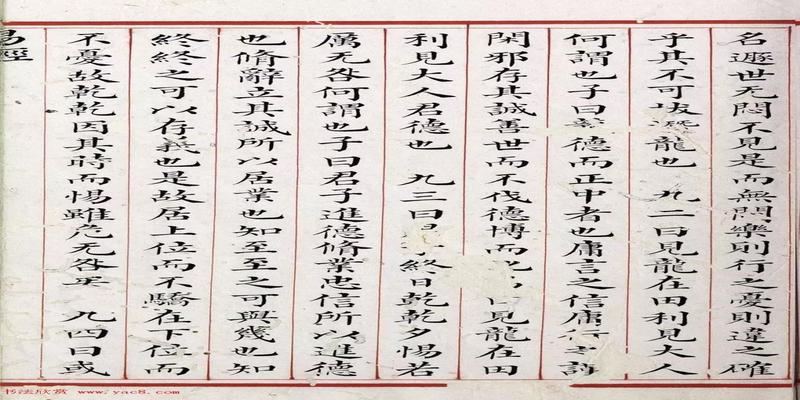 名遯世无悶不見是而無悶樂則行之憂則違之確
乎其不可拔潛龍也 九二曰見龍在田利見大人
何謂也子曰德而正中者也庸言之信庸行
閑邪存其誠善世而不伐德博而見龍在田
利見大人君德也 九三曰終日乾乾夕惕若
厲无咎何謂也子曰君子進德脩業忠信所以進德
也脩辭立其誠所以居業也知至至之可與幾也知
終終之可以存義也是故居上位而不驕在下位而
不憂故乾乾因其時而惕雖危无咎矣 九四曰或
易經
书法欣赏 www.yac8.com